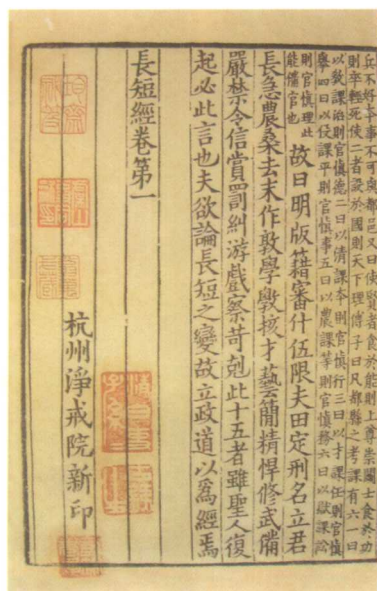 兵不好本事不可與都邑又曰使賢者食於能則上尊崇闘士食於功
則卒輕死使二者設於國則天下理傅子曰凡都縣之考課有六一曰
以教課治則官慎德二曰以清課本則官慎行三曰以才課任則官慎
舉四曰以役課平則官慎事五曰以農課等則官慎務六曰以獄課訟
則官慎理此
能備官也
故曰明版籍審什伍限夫田定刑名立君
長急農桑去末作敦學斆挍才藝簡精悍修武備
嚴禁令信賞罰糾游戲察苛剋此十五者雖聖人復
起必此言也夫欲論長短之變故立政道以爲經焉
長短經卷第一
杭州淨戒院新印